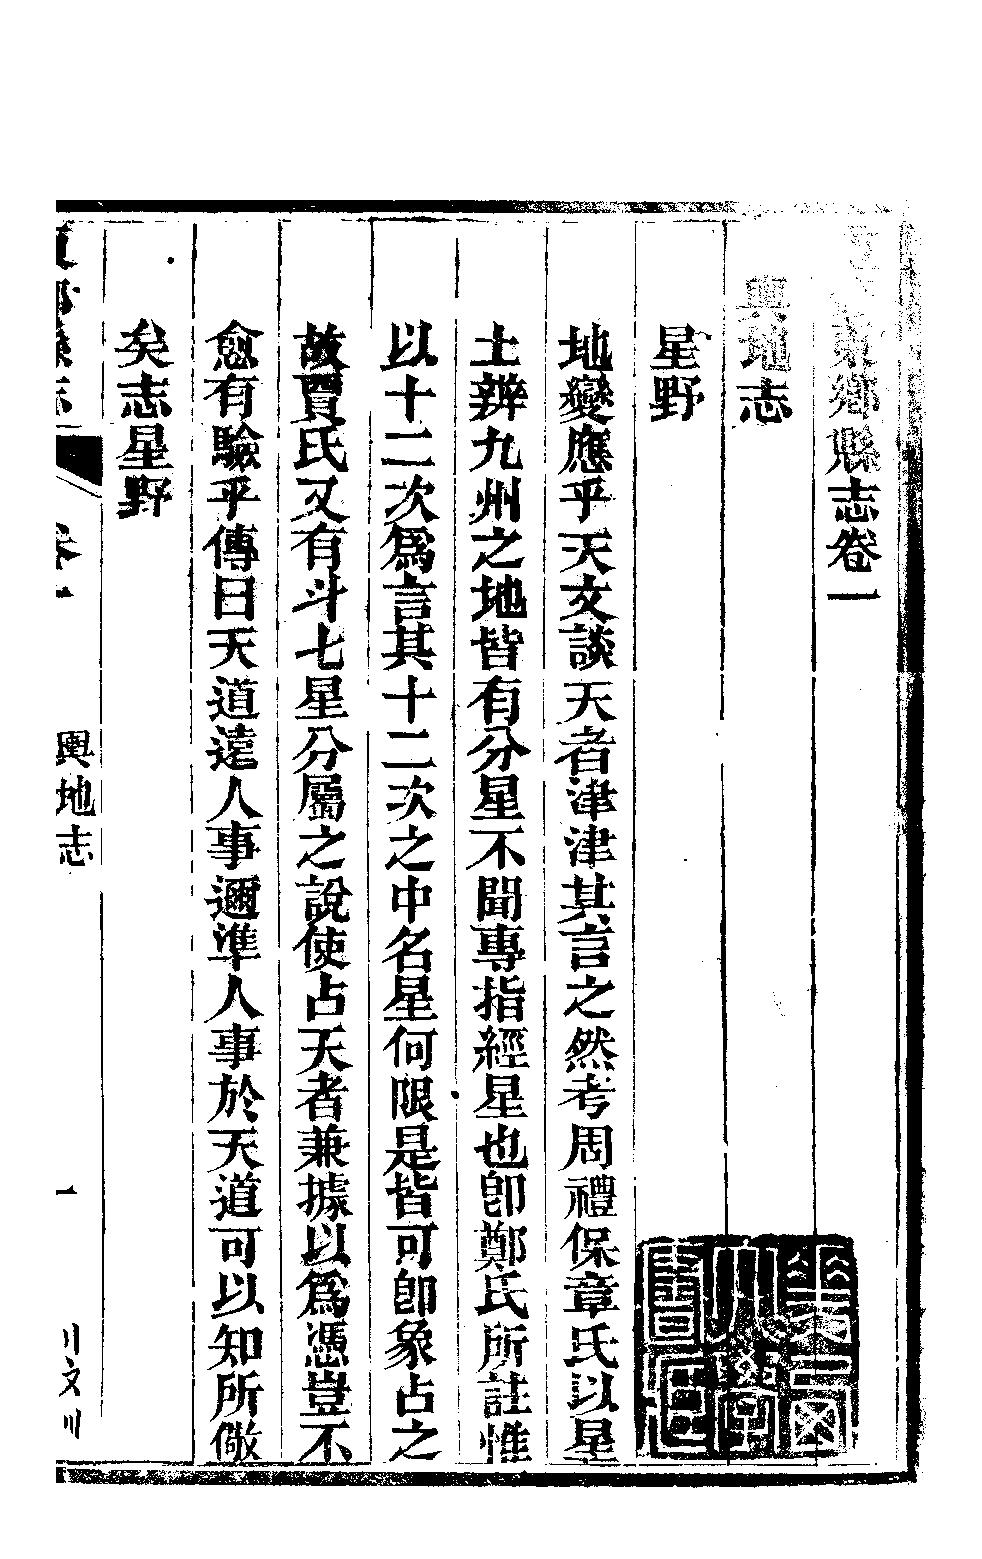 東鄉縣志卷一
輿地志
星野
地變應乎天文談天者津津其言之然考周禮保章氏以星
土辨九州之地皆有分星不聞專指經星也卽鄭氏所註惟
以十二次爲言其十二次之中名星何限是皆可卽象占之
故賈氏又有斗七星分屬之說使占天者兼據以爲憑豈不
愈有驗乎傳曰天道遠人事邇準人事於天道可以知所儆
矣志星野
縣志
卷一
輿地志
一